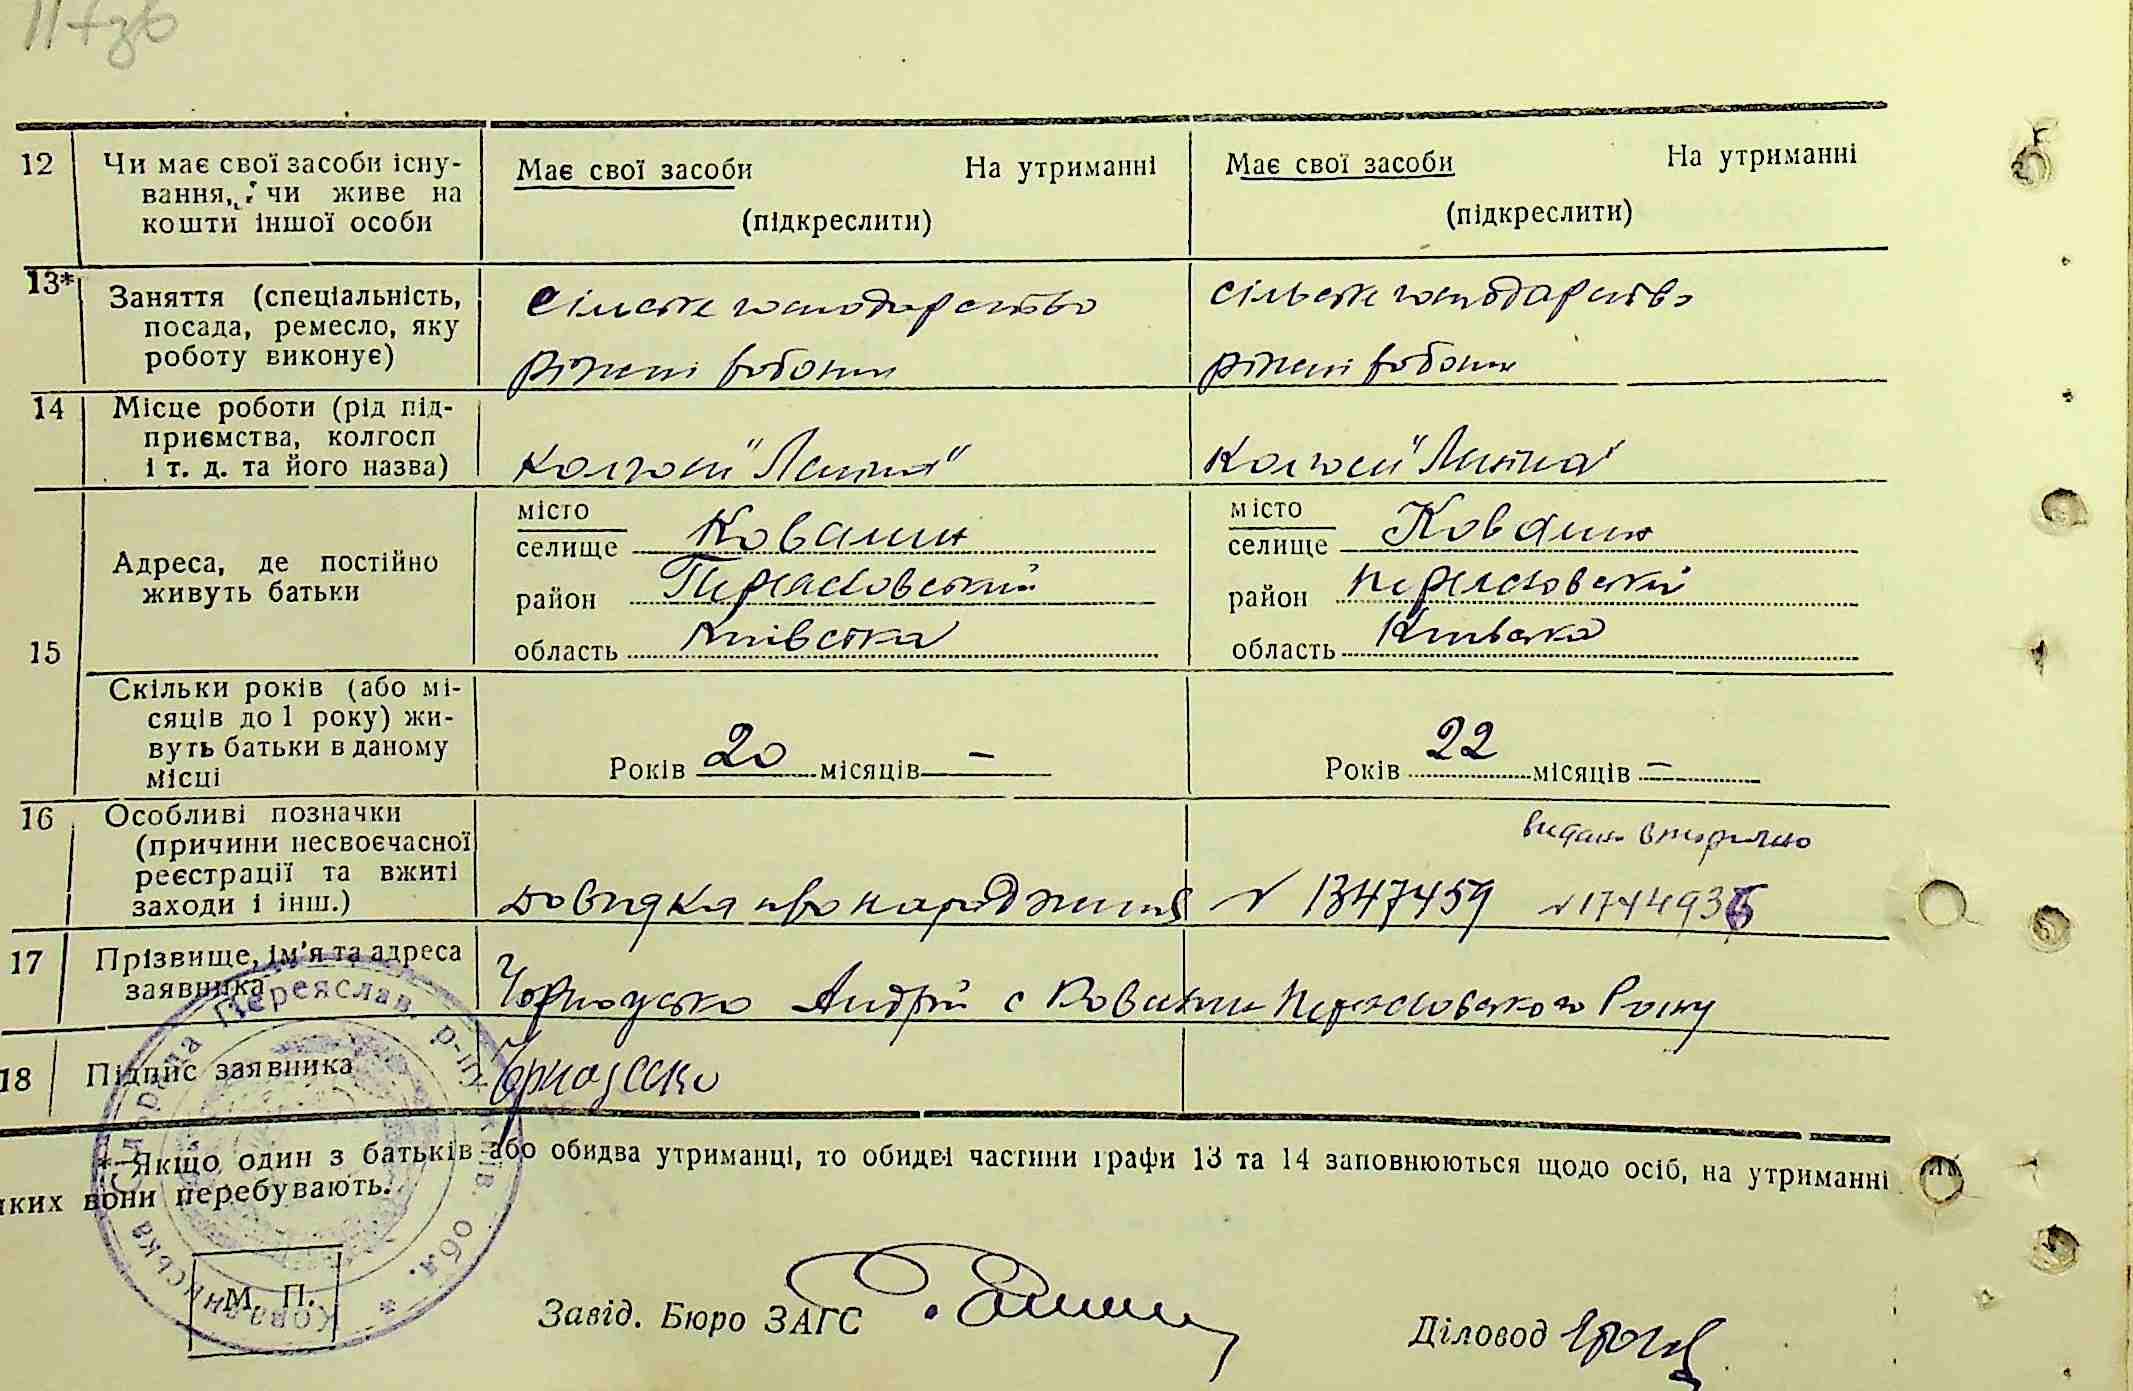 12 Чи має свої засоби існу- Має свої засоби На утриманні Має свої засоби На утриманні
вання, чи живе на
кошти іншої особи (підкреслити) (підкреслити)
13* Заняття (спеціальність, сільське господарство сільське господарство
посада, ремесло, яку
роботу виконує) різні роботи різні роботи
14 Місце роботи (рід під-
приємства, колгосп
і т. д. та його назва) Колгосп "Леніна" Колгосп "Леніна"
15 Адреса, де постійно
живуть батьки
місто
селище Ковалин
район Переяславський
область Київська
місто
селище Ковалин
район Переяславський
область Київська
Скільки років (або мі-
сяців до 1 року) жи-
вуть батьки в даному
місці
Років 20 місяців – Років 22 місяців –
16 Особливі позначки
(причини несвоєчасної
реєстрації та вжиті
заходи і інш.)
видано вторично
довидка про народження № 1347459 № 1744936
17 Прізвище, ім'я та адреса
заявника
Андрій с Ковалин Переясловського Рону
18 Підпис заявника
* Якщо один з батьків або обидва утриманці, то обидві частини графи 13 та 14 заповнюються щодо осіб, на утриманні
яких вони перебувають.
Переяслав. р-ну Київ. обл. * Ковалинська сільрада
М. П.
Завід. Бюро ЗАГС
Діловод